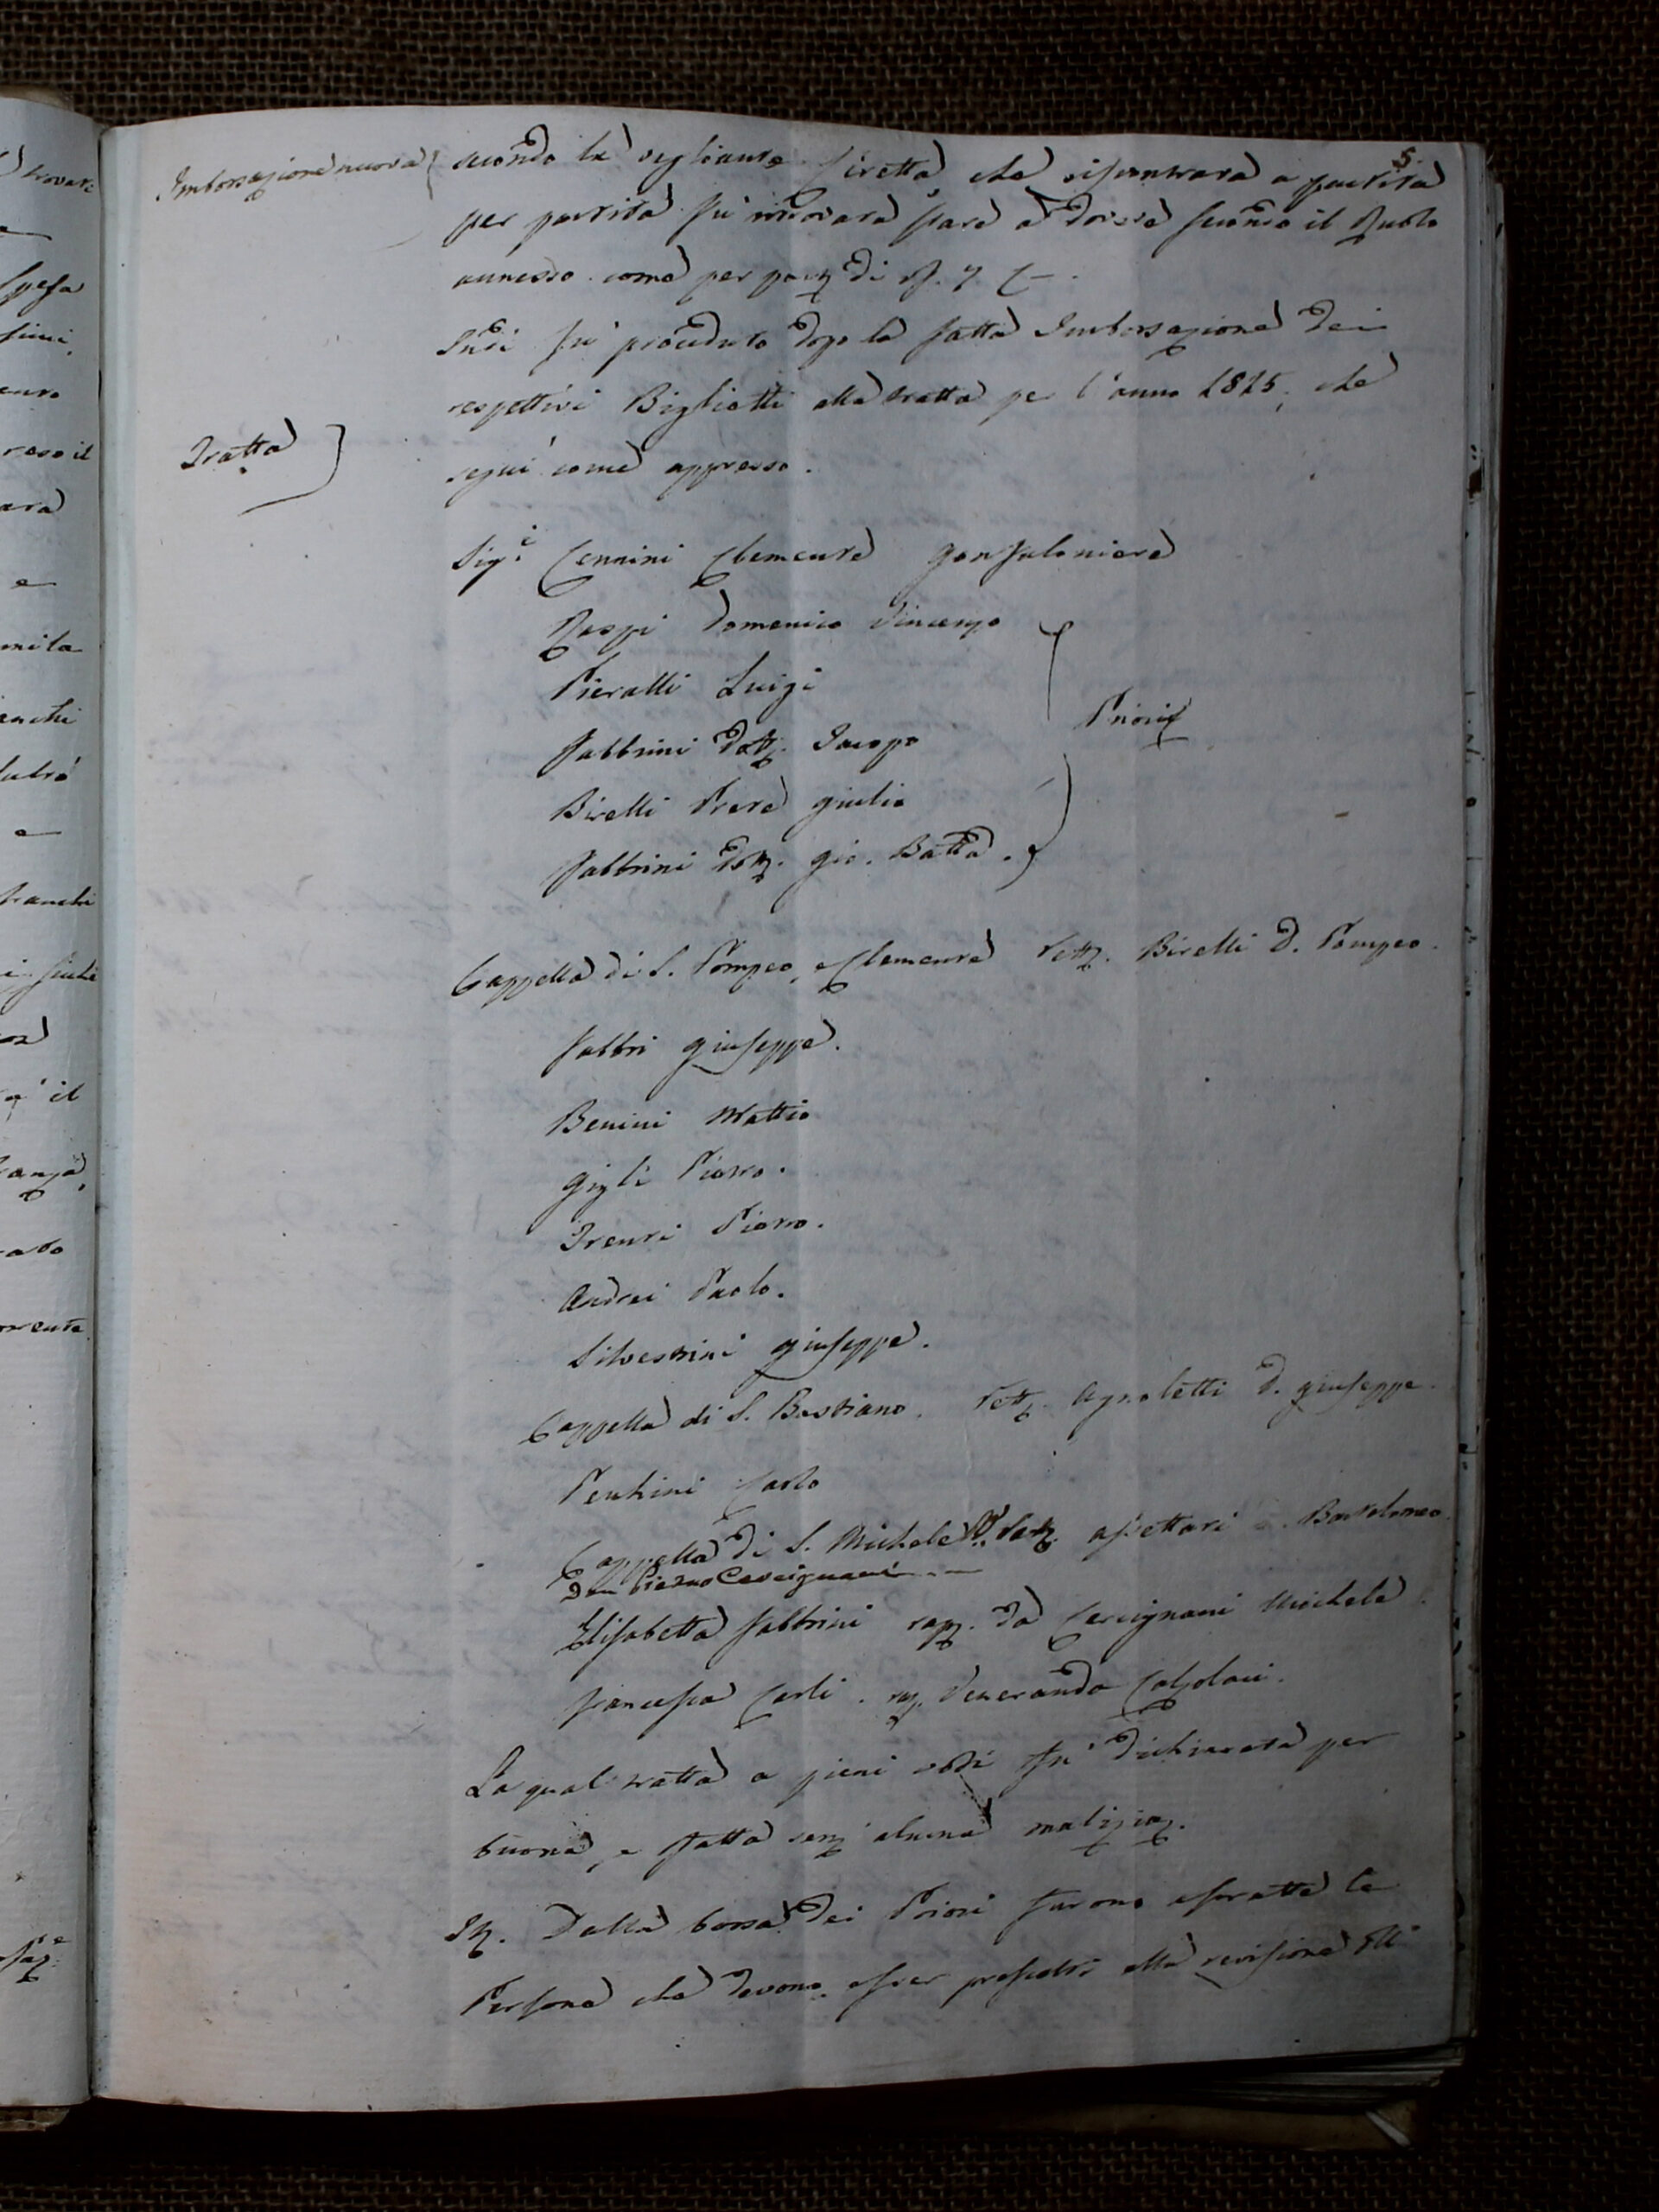 5.
Imborsazione nuova
secondo la vegliante che riscontrata a partita
per partita fù ritrovata stare a dovere secondo il Ruolo
annesso come per parz di N. 7
Indi fù proceduto dopo la fatta Imborsazione dei
respettivi Biglietti alla tratta per l'anno 1815, che
Tratta
seguì come appresso.
Sig.i Cennini Clemente Gonfaloniere
Raspi Domenico Vincenzo
Pieralli Luigi
Fabbrini Dott. Jacopo
Priori
Birelli Prete Giulio
Fabbrini Dott. Gio. Batta.
Cappella di S. Pompeo, e Clemente Rett. Birelli D. Pompeo.
Fabbri Giuseppe.
Benini Mattio
Gigli Pietro.
Trenti Pietro.
Andrei Paolo.
Silvestrini Giuseppe.
Cappella di S. Bastiano. Rett. Agnoletti D. Giuseppe.
Carlo
Cappella di S. Michele Rett. Bartolomeo
Don Pietro Cercignani
Elisabetta Fabbrini rapp. da Cercignani Michele.
Francesca Carli. rap. Veneranda Calzolari.
La qual tratta a pieni voti fù dichiarata per
buona, e fatta senz'alcuna malizia.
It. Dalla borsa dei Priori furono estratte le
Persone che devono esser prescelti alla revisione